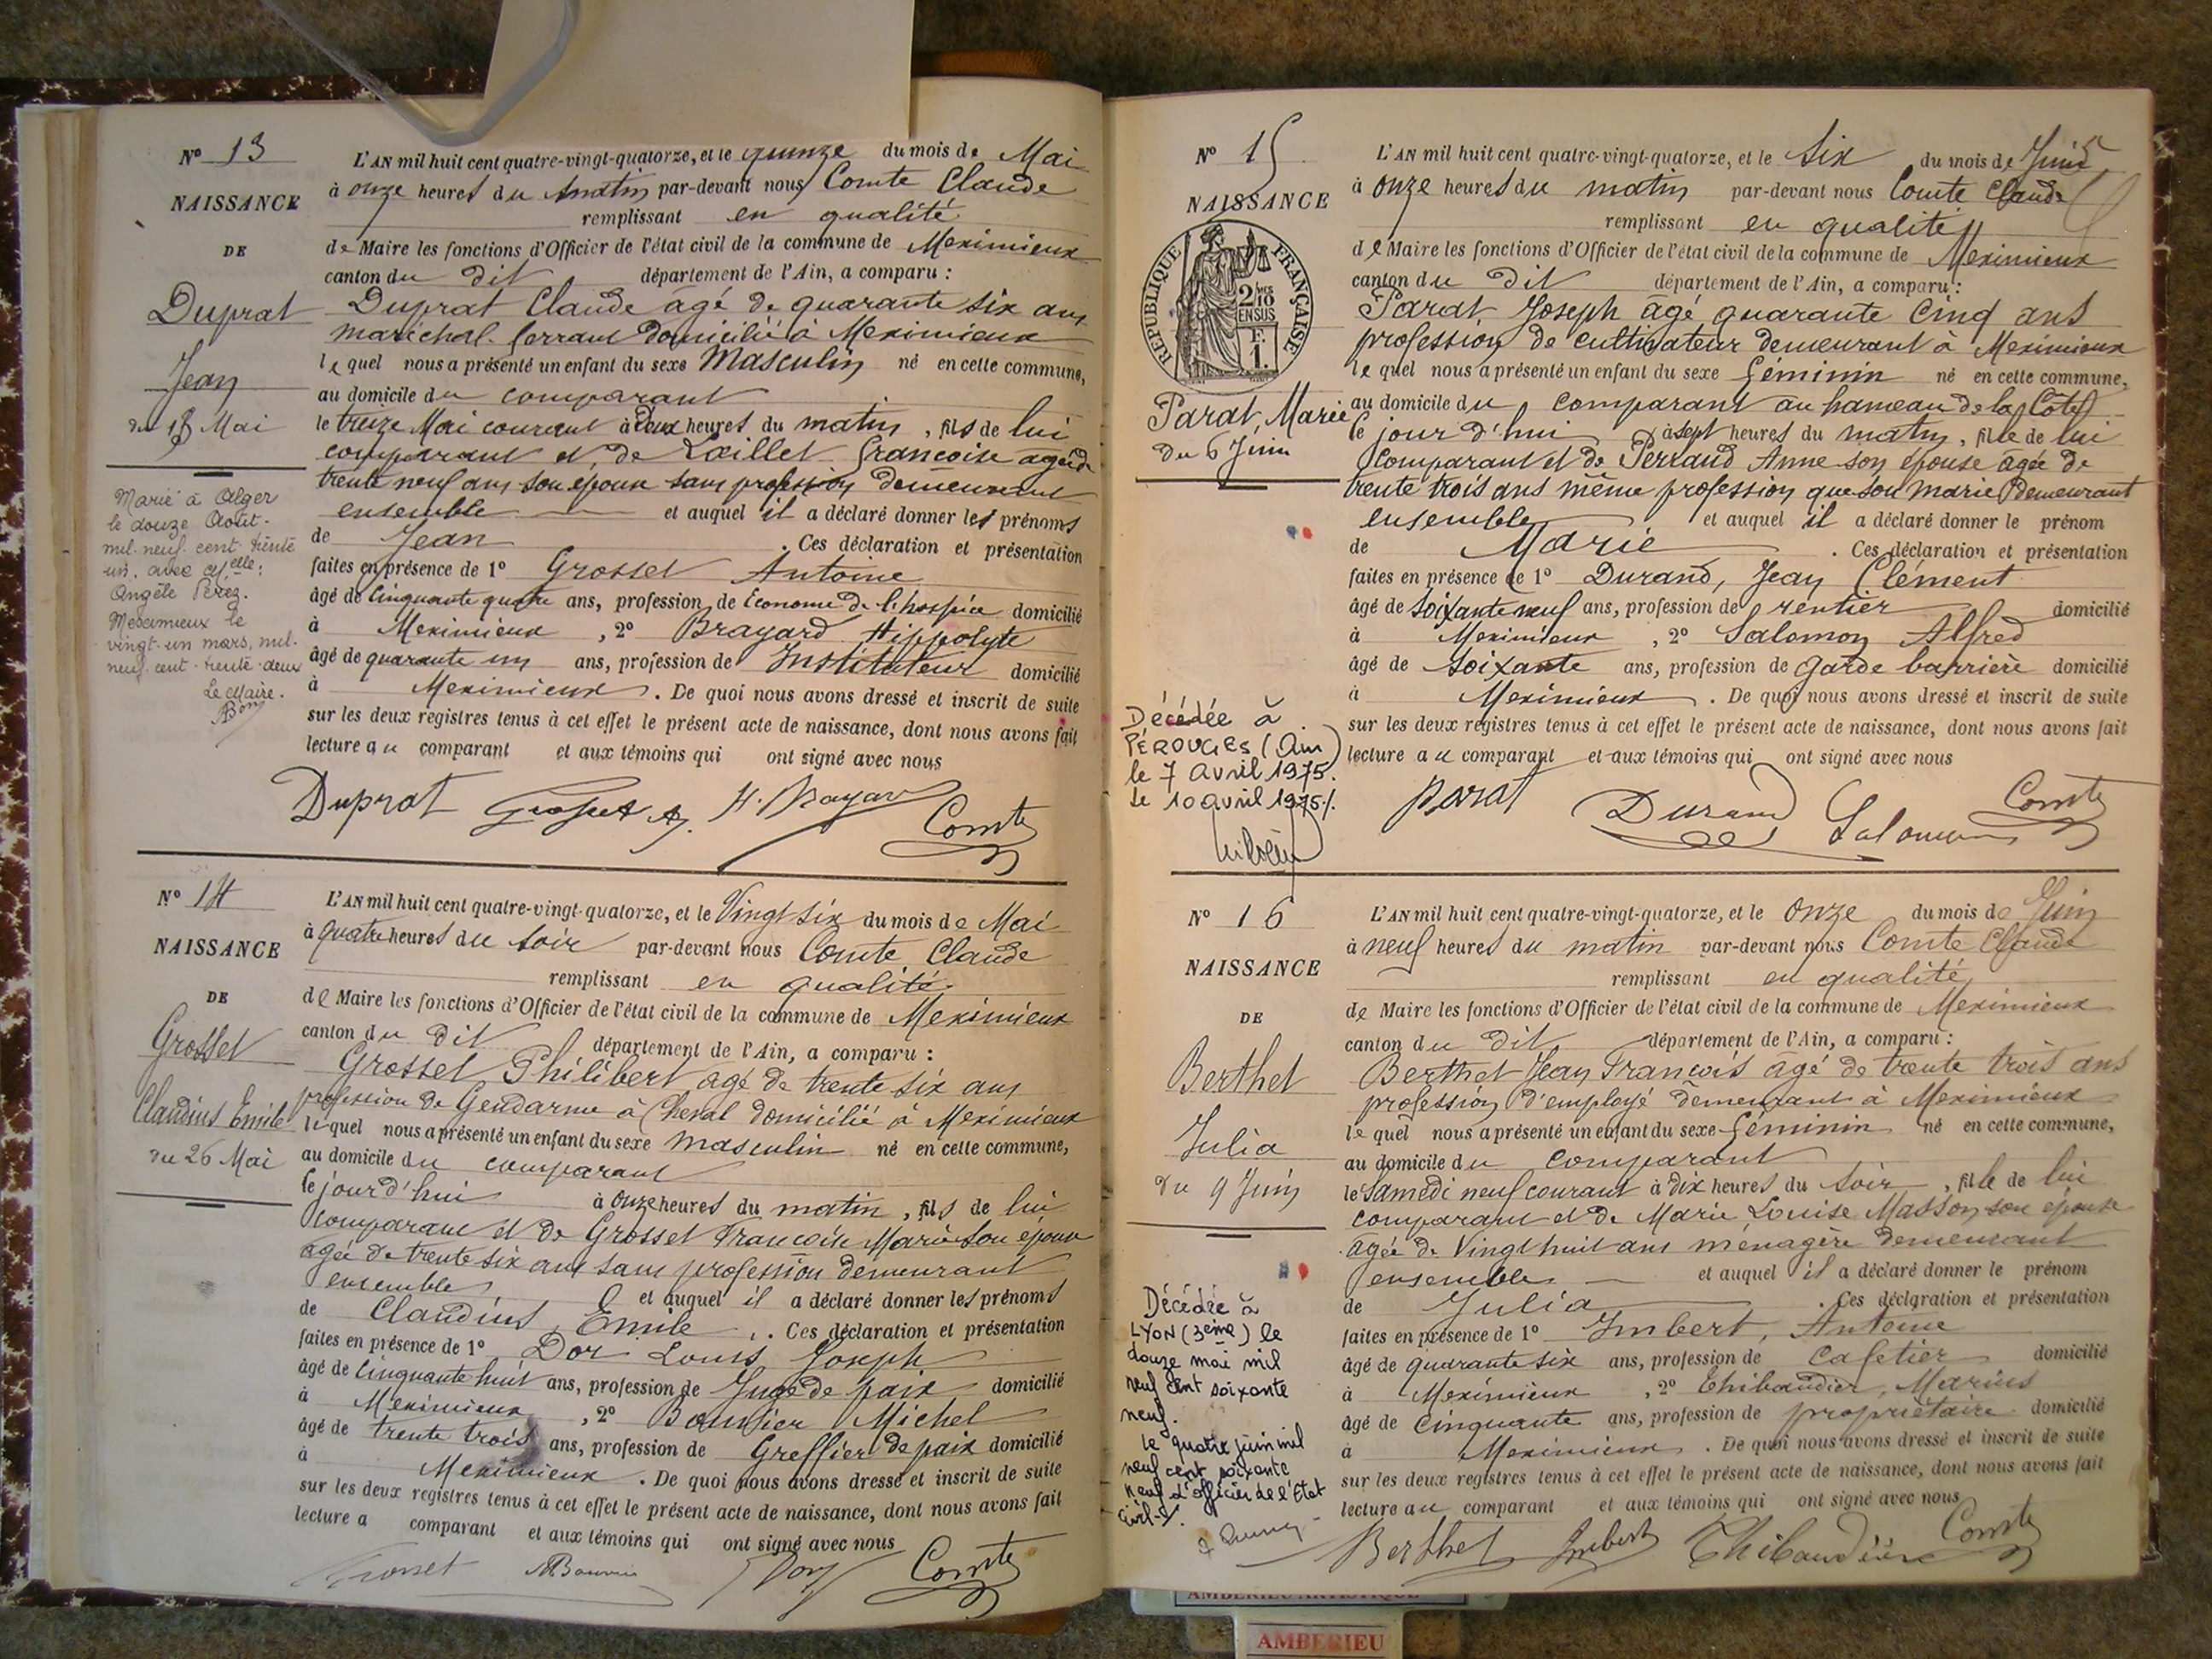 N° 13
NAISSANCE
DE
Duprat
Jean
du 13 Mai
Marié à Alger
le douze Août
mil neuf cent trente
un, avec Melle:
Angèle Perez.
Meximieux le
vingt-un mars, mil
neuf cent trente-deux
Le Maire.
L'AN mil huit cent quatre-vingt-quatorze, et le quinze du mois de Mai
à onze heures du matin par-devant nous Comte Claude
remplissant en qualité
de Maire les fonctions d'Officier de l'état civil de la commune de Meximieux
canton du dit département de l'Ain, a comparu :
Duprat Claude agé de quarante six ans
maréchal-ferrant domicilié à Meximieux
lequel nous a présenté un enfant du sexe Masculin né en cette commune,
au domicile du comparant
le treize Mai courant à deux heures du matin, fils de lui
comparant et de Lœillet Francoise agée de
trente neuf ans son epouse sans profession demeurant
ensemble et auquel il a déclaré donner les prénoms
de Jean . Ces déclaration et présentation
faites en présence de 1° Grosset Antoine
âgé de Cinquante quatre ans, profession de Econome de l'hospice domicilié
à Meximieux , 2° Brayard Hippolyte
âgé de quarante un ans, profession de Instituteur domicilié
à Meximieux . De quoi nous avons dressé et inscrit de suite
sur les deux registres tenus à cet effet le présent acte de naissance, dont nous avons fait
lecture au comparant et aux témoins qui ont signé avec nous
Duprat Grosset A. H. Brayard Comte
N° 14
NAISSANCE
DE
Grosset
Claudius Emile
du 26 Mai
L'AN mil huit cent quatre-vingt-quatorze, et le Vingt six du mois de Mai
à quatre heures du soir par-devant nous Comte Claude
remplissant en qualité
de Maire les fonctions d'Officier de l'état civil de la commune de Meximieux
canton du dit département de l'Ain, a comparu :
Grosset Philibert agé de trente six ans
profession de Gendarme à Cheval domicilié à Meximieux
lequel nous a présenté un enfant du sexe masculin né en cette commune,
au domicile du comparant
le jour d'hui à onze heures du matin, fils de lui
comparant et de Grosset Francoise Marie son épouse
agée de trente six ans sans profession demeurant
ensemble et auquel il a déclaré donner les prénoms
de Claudius, Emile . Ces déclaration et présentation
faites en présence de 1° Dor Louis Joseph
âgé de Cinquante huit ans, profession de Juge de paix domicilié
à Meximieux , 2° Bouvier Michel
âgé de trente trois ans, profession de Greffier de paix domicilié
à Meximieux . De quoi nous avons dressé et inscrit de suite
sur les deux registres tenus à cet effet le présent acte de naissance, dont nous avons fait
lecture a comparant et aux témoins qui ont signé avec nous
Grosset MBouvier Dor Comte
N° 15
NAISSANCE
RÉPUBLIQUE FRANÇAISE
2/10
EN SUS
F.
1.
Parat, Marie
du 6 Juin
Décédée à
PÉROUGES (Ain)
le 7 avril 1975.
Le 10 avril 1975./.
L'AN mil huit cent quatre-vingt-quatorze, et le Six du mois de Juin
à onze heures du matin par-devant nous Comte Claude
remplissant en qualité
de Maire les fonctions d'Officier de l'état civil de la commune de Meximieux
canton du dit département de l'Ain, a comparu :
Parat Joseph agé quarante Cinq ans
profession de cultivateur demeurant à Meximieux
lequel nous a présenté un enfant du sexe féminin né en cette commune,
au domicile du comparant au hameau de la Côte
le jour d'hui à sept heures du matin, fille de lui
Comparant et de Perraud Anne son épouse agée de
trente trois ans même profession que son marie demeurant
ensemble et auquel il a déclaré donner le prénom
de Marie . Ces déclaration et présentation
faites en présence de 1° Durand, Jean Clément
âgé de soixante neuf ans, profession de rentier domicilié
à Meximieux , 2° Salomon Alfred
âgé de soixante ans, profession de garde barrière domicilié
à Meximieux . De quoi nous avons dressé et inscrit de suite
sur les deux registres tenus à cet effet le présent acte de naissance, dont nous avons fait
lecture au comparant et aux témoins qui ont signé avec nous
Parat Durand Salomon Comte
N° 16
NAISSANCE
DE
Berthet
Julia
du 9 Juin
Décédée à
LYON (3ème) le
douze mai mil
neuf cent soixante
neuf.
Le quatre juin mil
neuf cent soixante
neuf d'officier de l'Etat
Civil./.
L'AN mil huit cent quatre-vingt-quatorze, et le onze du mois de Juin
à neuf heures du matin par-devant nous Comte Claude
remplissant en qualité
de Maire les fonctions d'Officier de l'état civil de la commune de Meximieux
canton du dit département de l'Ain, a comparu :
Berthet Jean François âgé de trente trois ans
profession d'employé demeurant à Meximieux
lequel nous a présenté un enfant du sexe féminin né en cette commune,
au domicile du comparant
le Samedi neuf courant à dix heures du soir, fille de lui
comparant et de Marie Louise Masson son épouse
agée de Vingt huit ans ménagère demeurant
ensemble et auquel il a déclaré donner le prénom
de Julia . Ces déclaration et présentation
faites en présence de 1° Imbert, Antoine
âgé de quarante six ans, profession de Cafetier domicilié
à Meximieux , 2° Thibaudier, Marius
âgé de Cinquante ans, profession de propriétaire domicilié
à Meximieux . De quoi nous avons dressé et inscrit de suite
sur les deux registres tenus à cet effet le présent acte de naissance, dont nous avons fait
lecture au comparant et aux témoins qui ont signé avec nous
Berthet Imbert Thibaudier Comte
AMBERIEU ARTISTIQUE
AMBERIEU